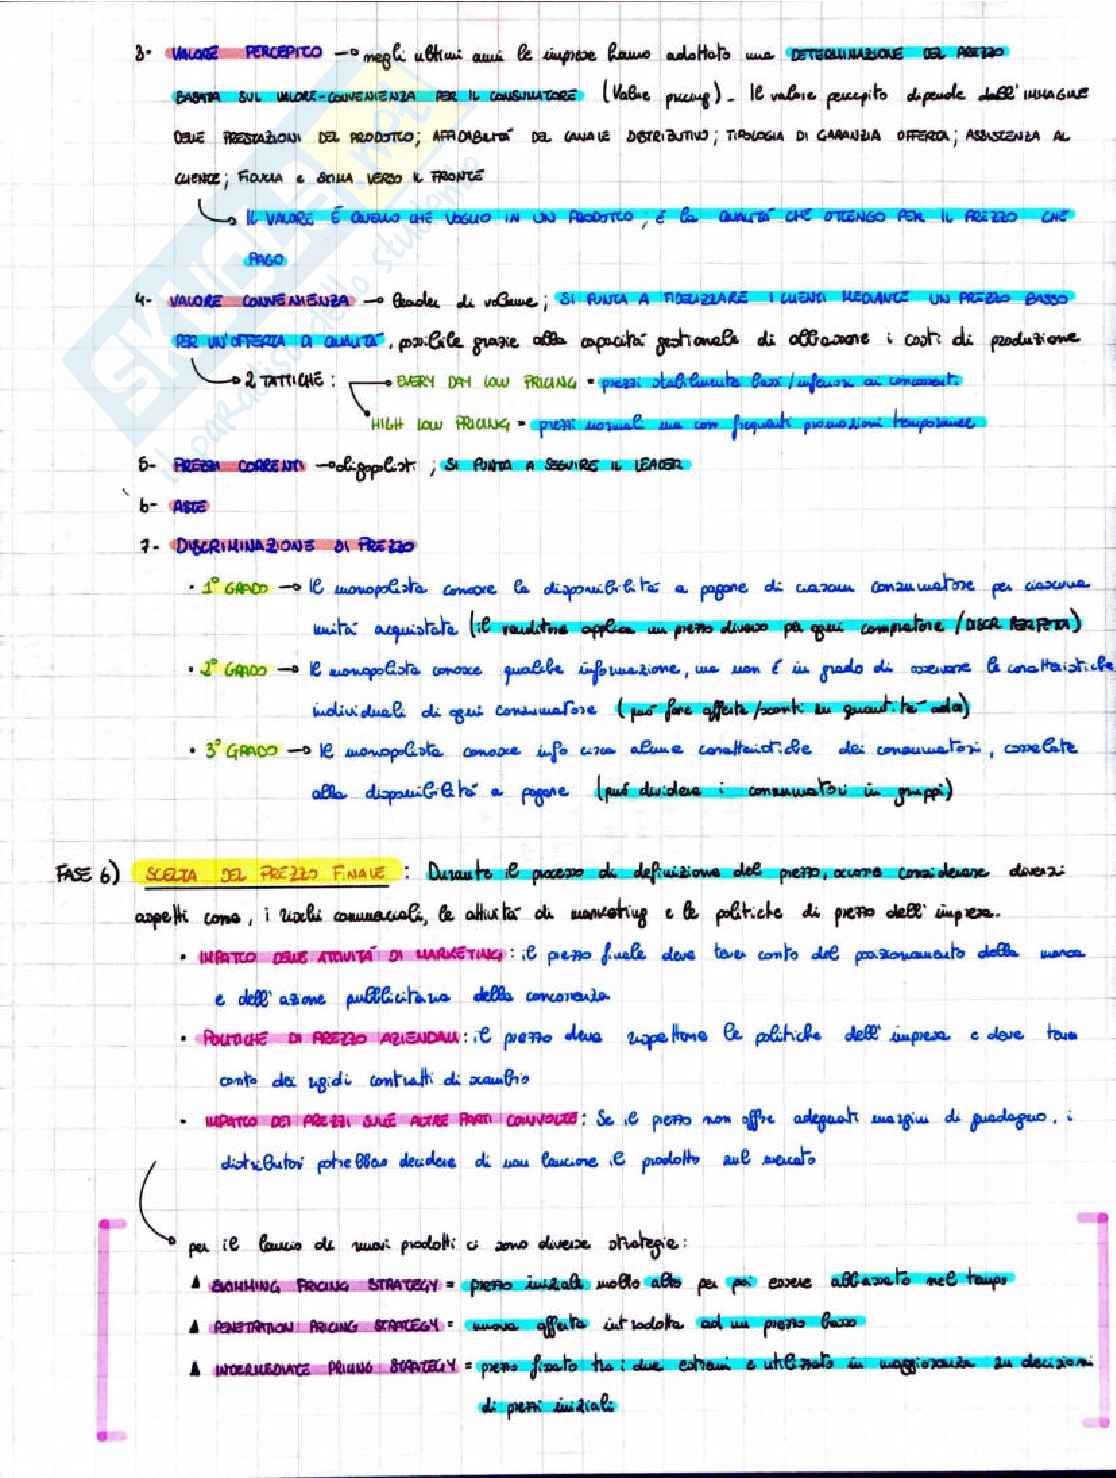 3- VALORE PERCEPITO → negli ultimi anni le imprese hanno adottato una DETERMINAZIONE DEL PREZZO
BASATA SUL VALORE-CONVENIENZA PER IL CONSUMATORE (Value pricing). Il valore percepito dipende dall'IMMAGINE
DELLE PRESTAZIONI DEL PRODOTTO; AFFIDABILITÁ DEL CANALE DISTRIBUTIVO; TIPOLOGIA DI GARANZIA OFFERTA; ASSISTENZA AL
CLIENTE; FIDUCIA e STIMA VERSO IL
IL VALORE É QUELLO CHE VOGLIO IN UN PRODOTTO; É la QUALITÁ CHE OTTENGO PER IL PREZZO CHE
PAGO
4- VALORE CONVENIENZA → leader di volume; SI PUNTA A FIDELIZZARE I CLIENTI MEDIANTE UN PREZZO BASSO
PER UN'OFFERTA DI QUALITÁ, possibile grazie alla capacitá gestionale di abbassare i costi di produzione
2 TATTICHE: → EVERY DAY LOW PRICING = prezzi stabilmente bassi/inferiori ai concorrenti
HIGH LOW PRICING = prezzi normali ma con frequenti promozioni temporanee
5- PREZZI CORRENTI → oligopolisti; SI PUNTA A SEGUIRE IL LEADER
6- ASTE
7- DISCRIMINAZIONE DI PREZZO
• 1° GRADO → Il monopolista conosce la disponibilitá a pagare di ciascun consumatore per ciascuna
unitá acquistata (il venditore applica un prezzo diverso per ogni compratore / DISCR PERFETTA)
• 2° GRADO → Il monopolista conosce qualche informazione, ma non é in grado di osservare le caratteristiche
individuali di ogni consumatore (può fare offerte/sconti su quantitá)
• 3° GRADO → Il monopolista conosce info circa alcune caratteristiche dei consumatori, correlate
alla disponibilitá a pagare (può dividere i consumatori in gruppi)
FASE 6) SCELTA DEL PREZZO FINALE: Durante il processo di definizione del prezzo, occorre considerare diversi
aspetti come, i rischi commerciali, le attivitá di marketing e le politiche di prezzo dell'impresa.
• IMPATTO DELLE ATTIVITÁ DI MARKETING: il prezzo finale deve tener conto del posizionamento della marca
e dell'azione pubblicitaria della concorrenza
• POLITICHE DI PREZZO AZIENDALI: il prezzo deve rispettare le politiche dell'impresa e deve tener
conto dei rigidi contratti di scambio
• IMPATTO DEI PREZZI SULLE ALTRE PARTI COINVOLTE: Se il prezzo non offre adeguati margini di guadagno, i
distributori potrebbero decidere di non lanciare il prodotto sul mercato
per il lancio di nuovi prodotti ci sono diverse strategie:
SKIMMING PRICING STRATEGY = prezzo iniziale molto alto per poi essere abbassato nel tempo
PENETRATION PRICING STRATEGY = nuova offerta introdotta ad un prezzo basso
INTERMEDIATE PRICING STRATEGY = prezzo fissato tra i due estremi e utilizzato in maggioranza su decisioni
di prezzi iniziali
SKUOLA.net
il paradiso dello studente